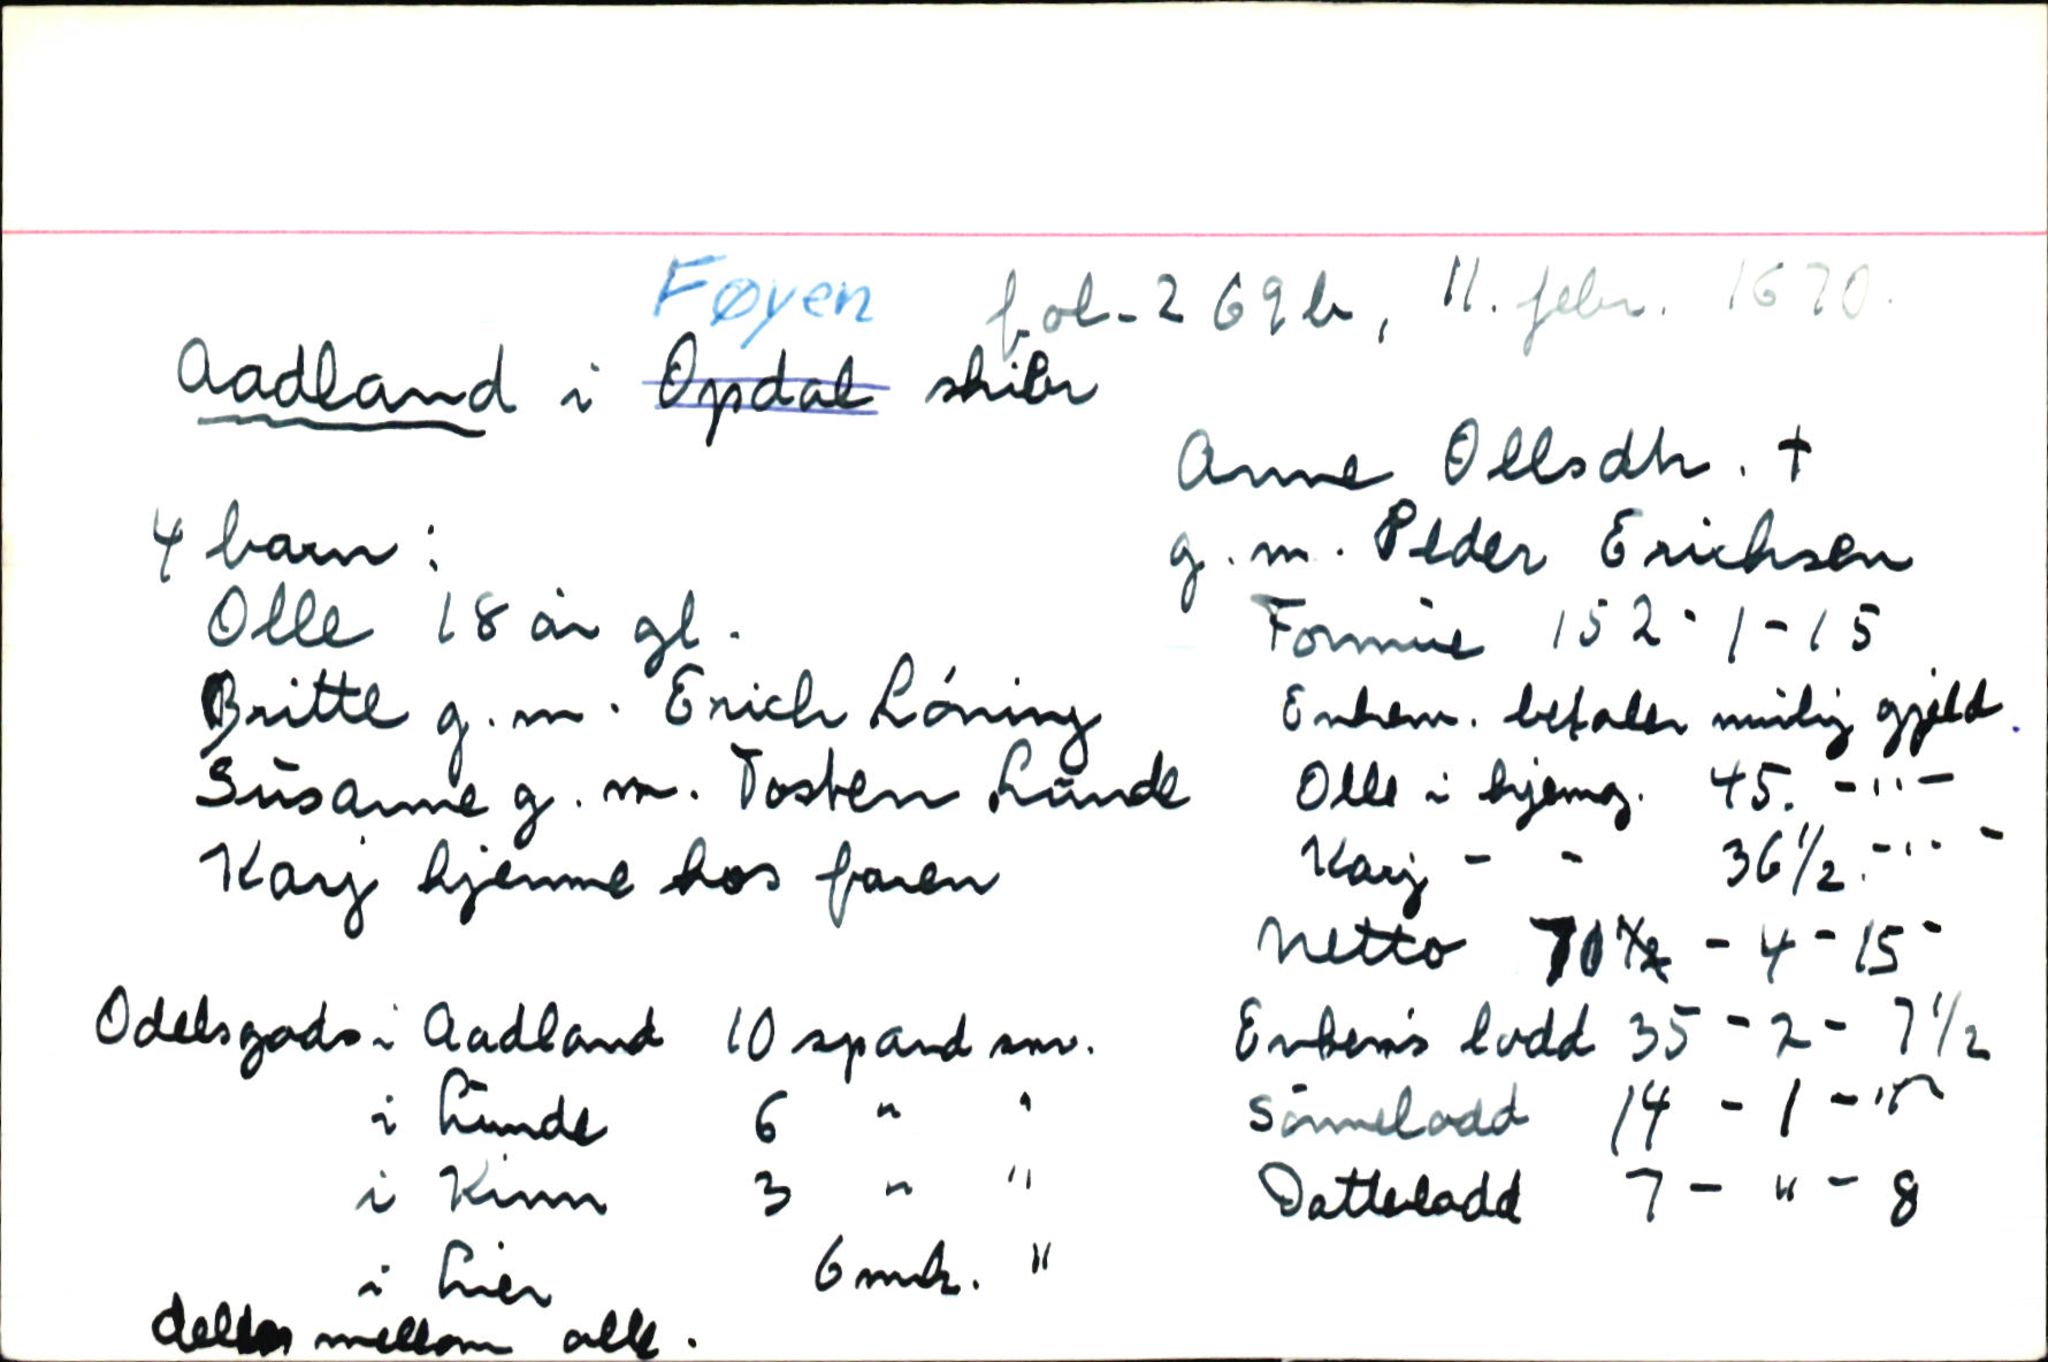 Føyen fol. 269b, 11. febr. 1670.
Aadland i Opdal skibr
Anne Ollsdtr. †
g. m. Peder Erichsen
4 barn:
Olle 18 år gl.
Britte g. m. Erich Lóning
Susanne g. m. Tosten Lunde
Karj hjemme hos faren
Formue 152 - 1 - 15
Enkem. betaler mulig gjeld.
Olle i hjemg. 45. - " -
Karj - - 36 1/2. - " -
Netto 70 - 4 - 15 -
Enkem's lodd 35 - 2 - 7 1/2
Sönnelodd 14 - 1 -
Dattelodd 7 - " - 8
Odelsgods i Aadland 10 spand smr.
i Lunde 6 " "
i Kinn 3 " "
i Lier 6 mrk. "
deles mellom alle.